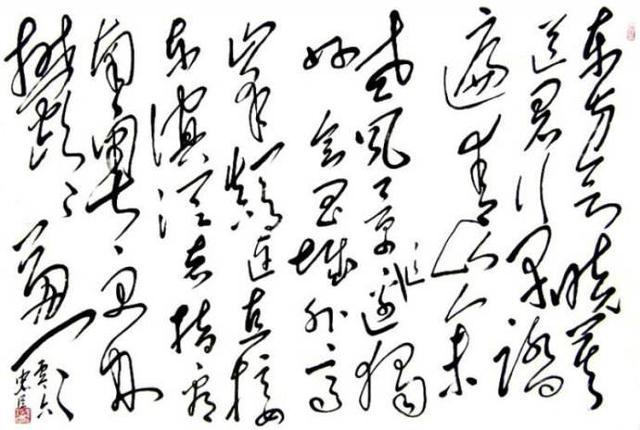 东方欲晓莫
道君行早踏
遍青山人未
老风景这边独
好会昌城外高
峰颠连直接
东溟战士指看
南粤更加
郁郁葱葱